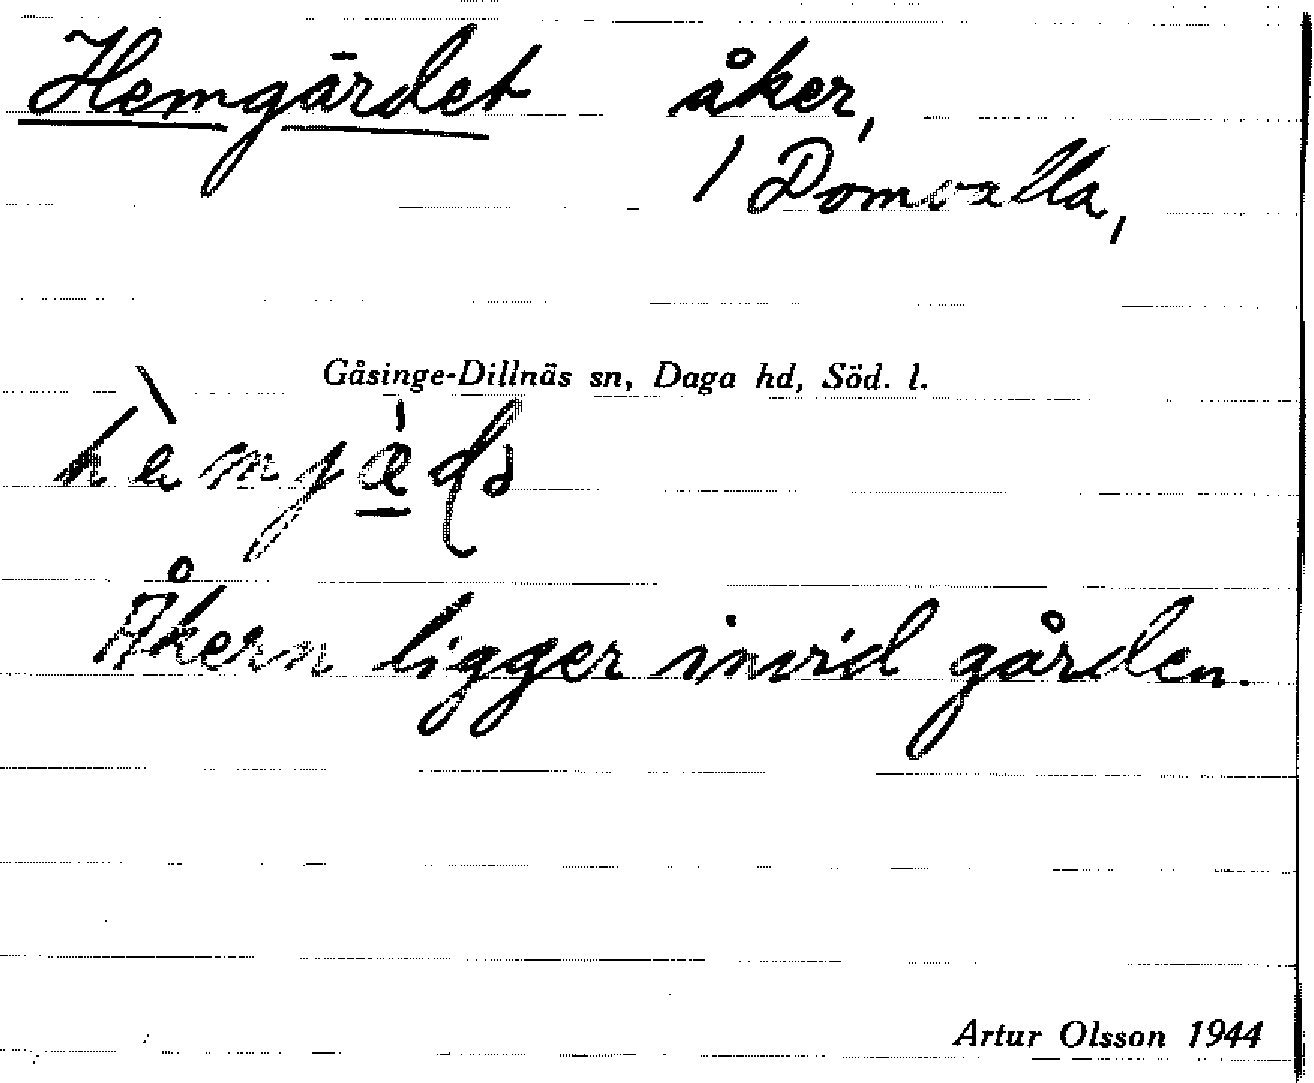 Hemgärdet åker,
/ Domvalla,
Gåsinge-Dillnäs sn, Daga hd, Söd. l.
Åkern ligger invid gården.
Artur Olsson 1944